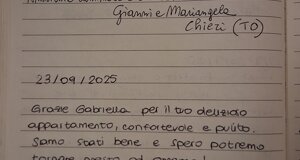 Gianni e Mariangela
Chieri (TO)
23/09/2025
Grazie Gabriella per il tuo delizioso
appartamento, confortevole e pulito.
Siamo stati bene e spero potremo